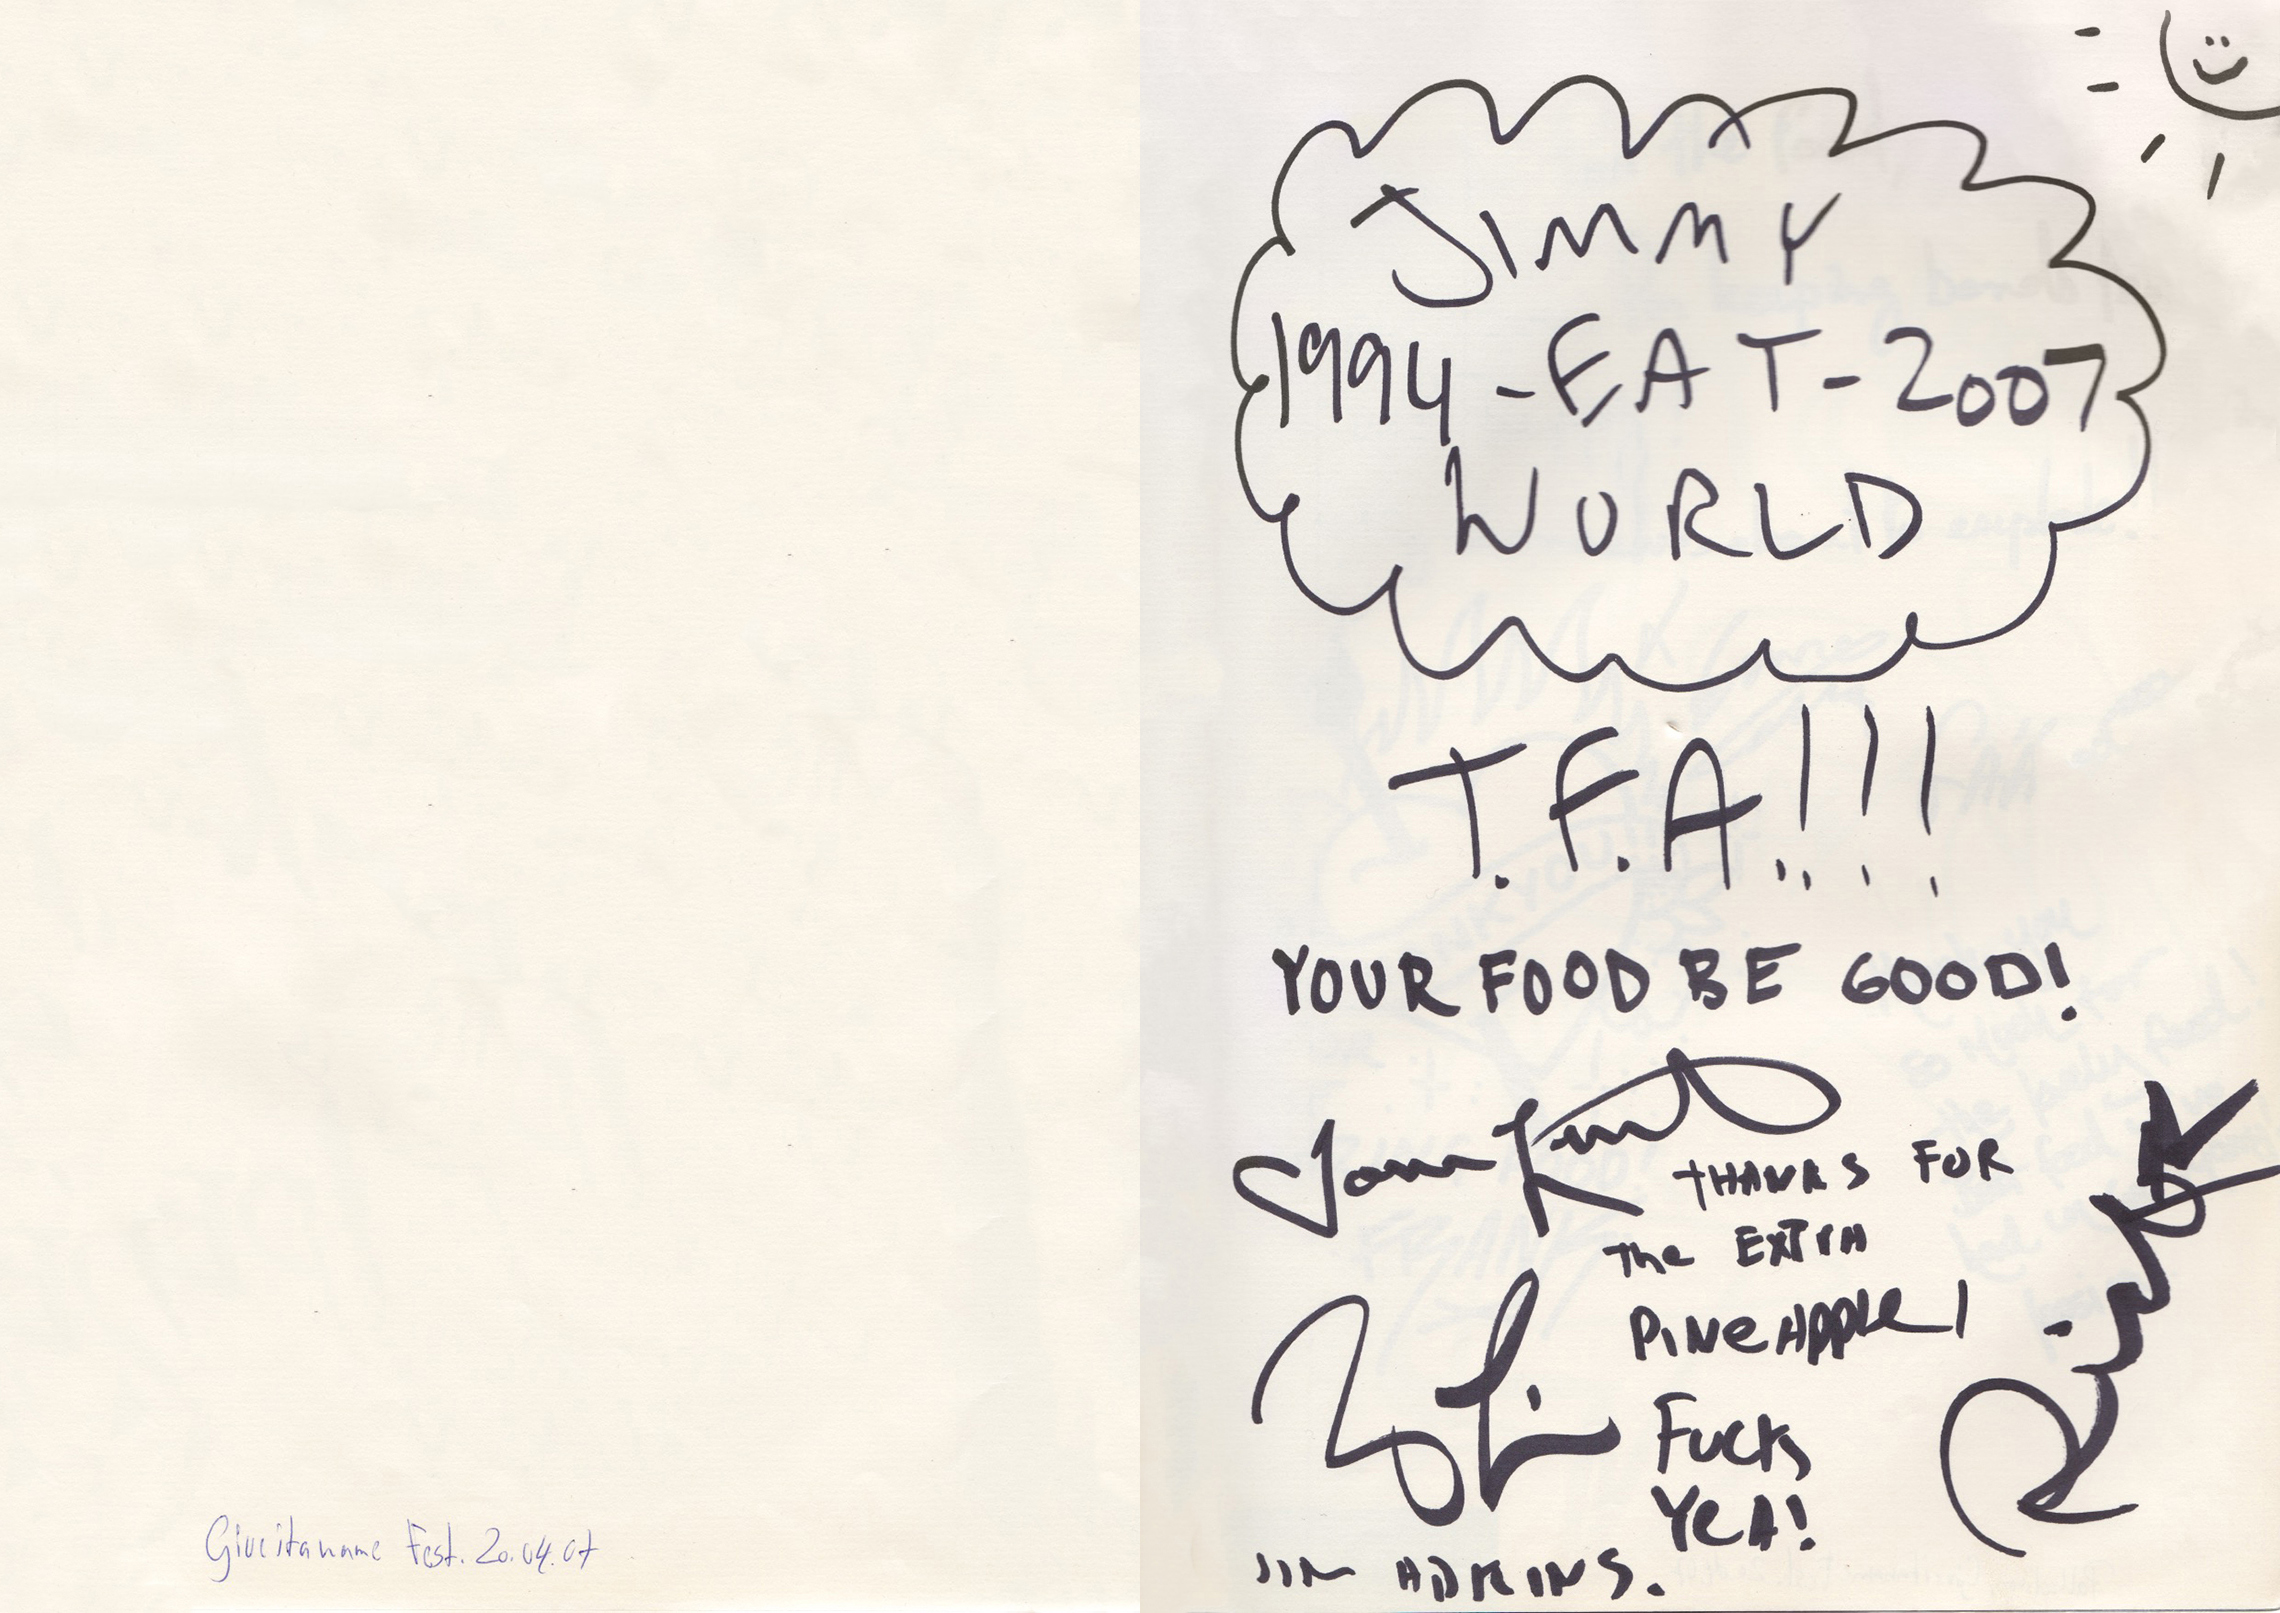 Giveitaname Fest. 20.04.07
JIMMY
1994 - EAT - 2007
WORLD
T.F.A!!!
YOUR FOOD BE GOOD!
THANKS FOR
The EXTRA
PINEAPPLE!
FUCK
YEA!
JIM ADKINS.